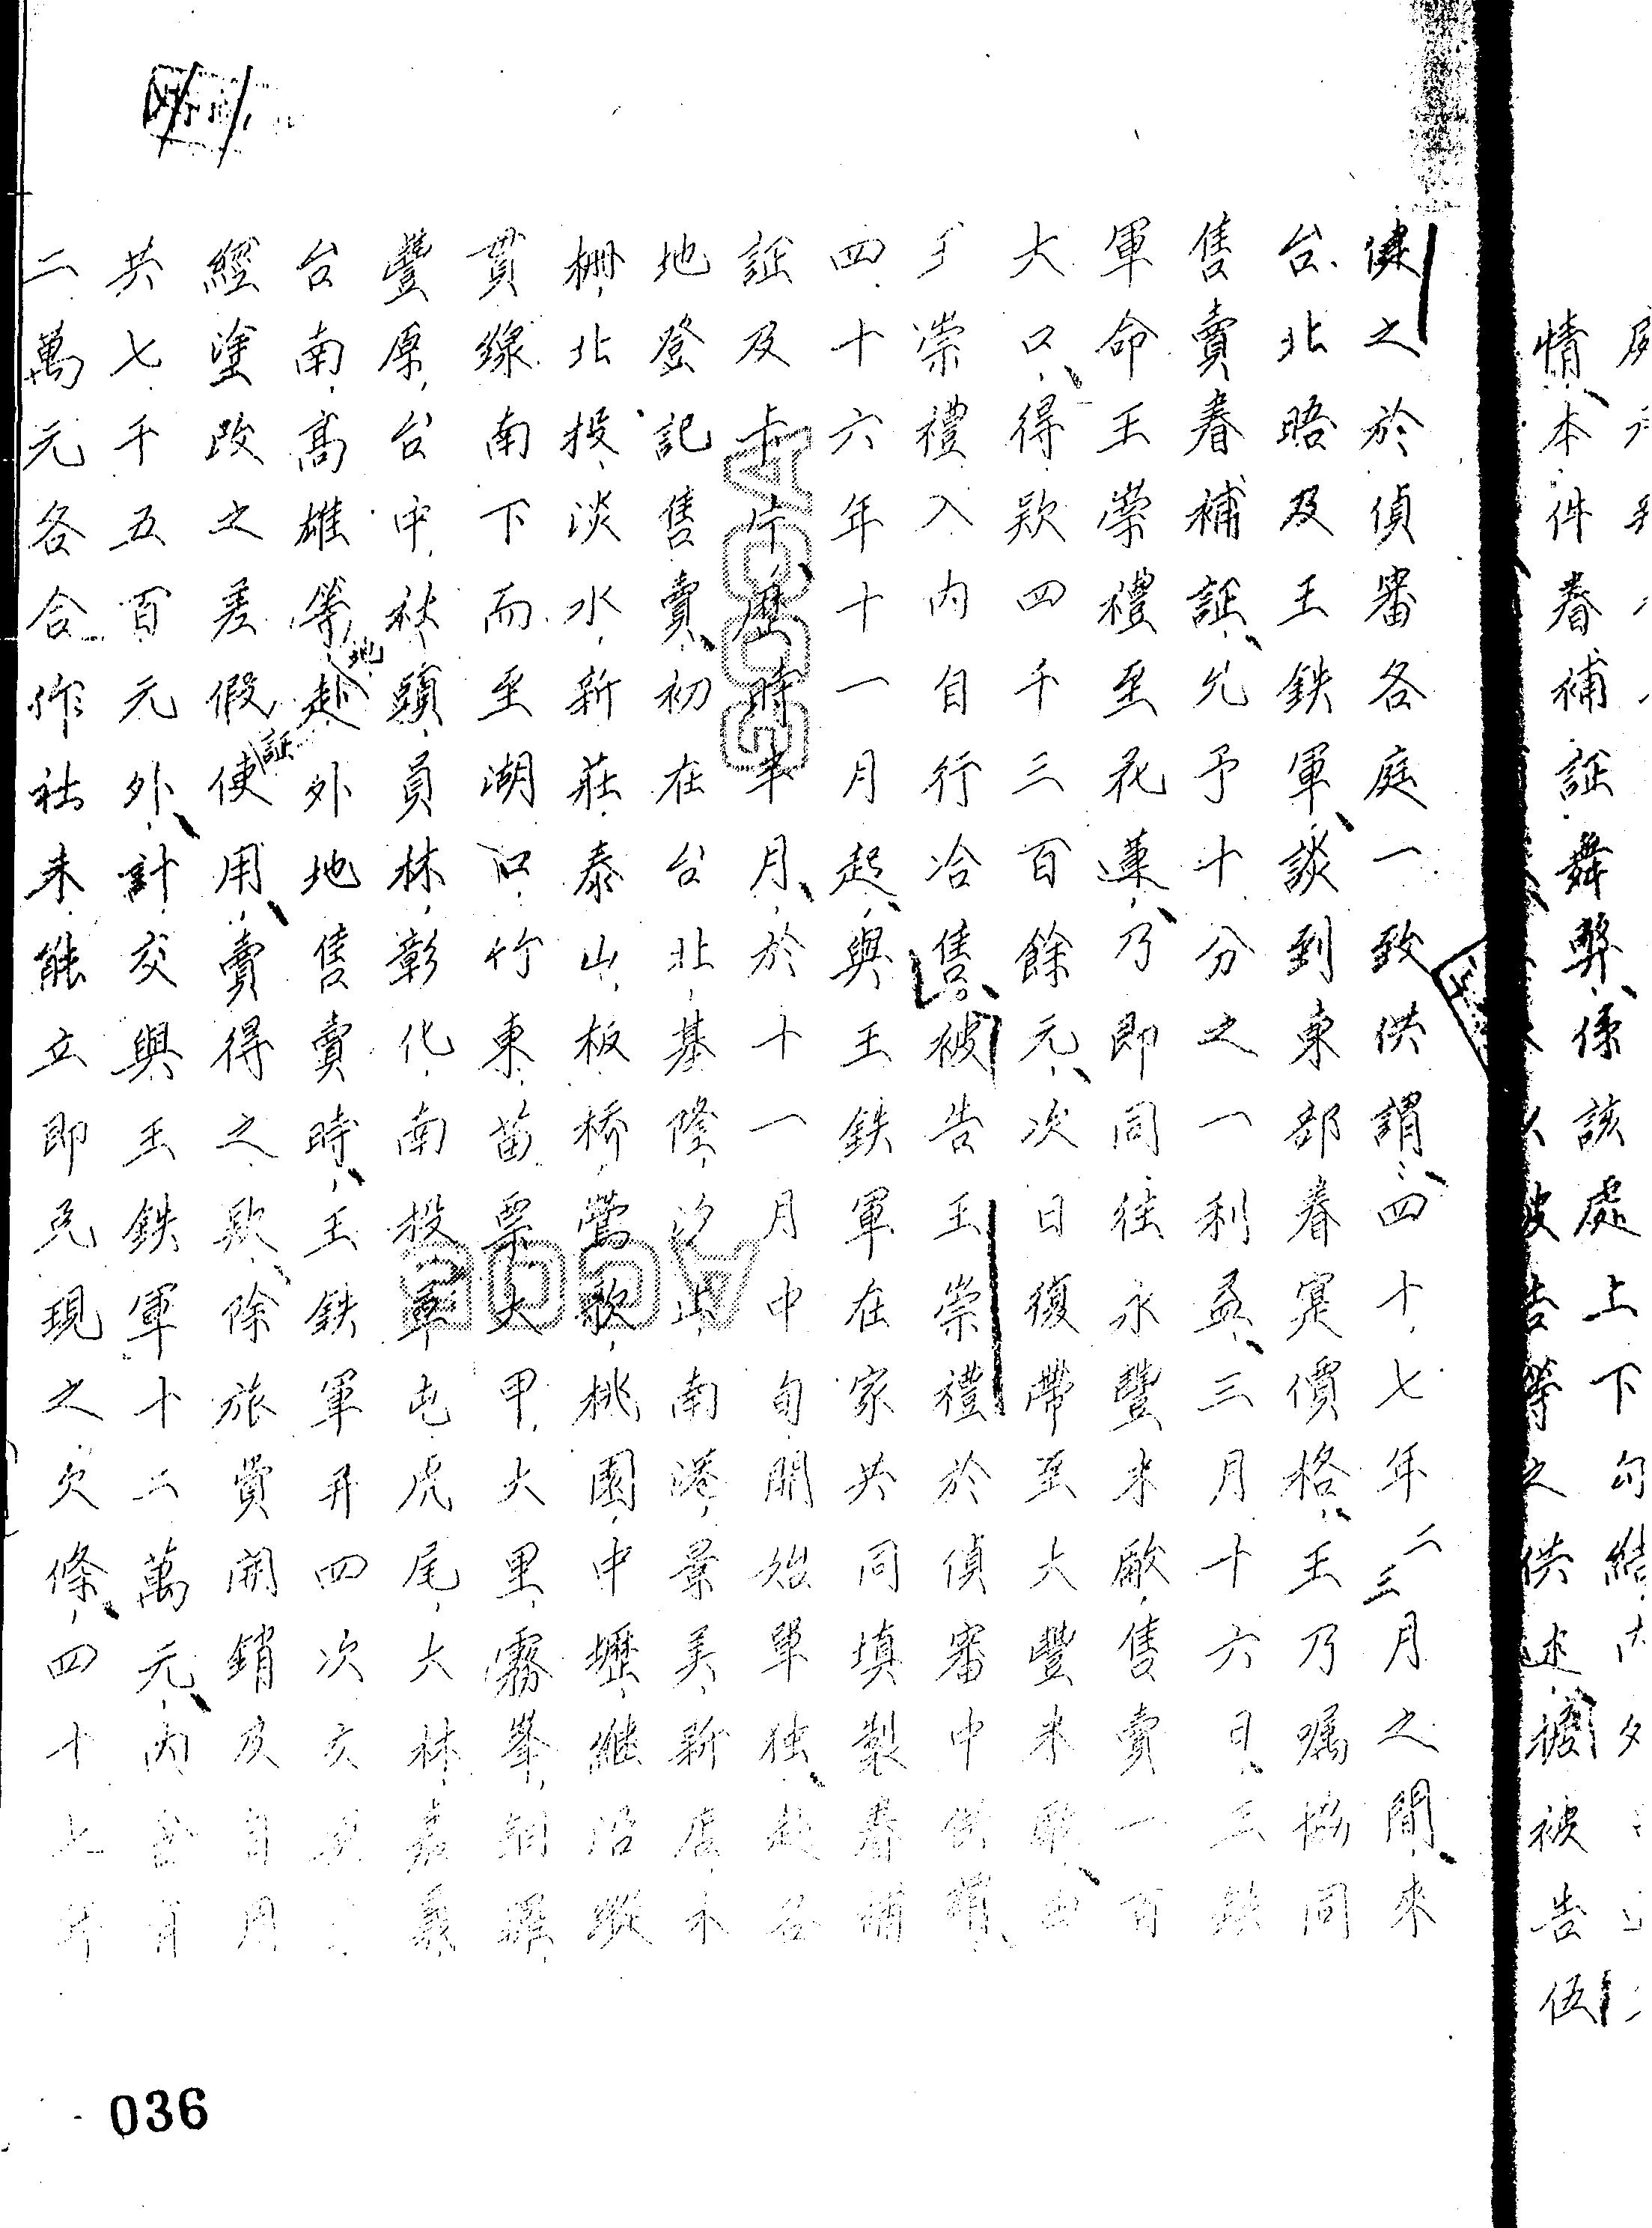 情、本件眷補証舞弊、係該處上下勾結
被告等之供述、據被告伍
健之於偵審各庭一致供謂、四十七年二三月之間、來
台北晤及王鉄軍、談到東部眷寔價格、王乃囑協同
售賣眷補証、允予十分之一利益、三月十六日、王鉄
軍命王崇禮至花蓮、乃即同往永豐米廠、售賣一百
大口、得欵四千三百餘元、次日復帶至大豐米廠、由
王崇禮入內自行洽售。被告王崇禮於偵審中供謂、
四十六年十一月起、與王鉄軍在家共同填製眷補
証及卡片、歷時半月、於十一月中旬開始單独、赴各
地登記售賣、初在台北、基隆、汐止、南港、景美、新店、木
柵、北投、淡水、新莊、泰山、板橋、鶯歌、桃園、中壢、繼沿縱
貫線南下而至湖口、竹東、苗栗、大甲、大里、霧峯、銅鑼、
豐原、台中、秋頭、員林、彰化、南投、草屯、虎尾、大林、嘉義、
台南、高雄等地、赴外地售賣時、王鉄軍并四次交
經塗改之差假証使用、賣得之欵、除旅費開銷及自用
共七千五百元外、計交與王鉄軍十二萬元、內含有
二萬元各合作社未能立即兌現之欠條、四十七年
036